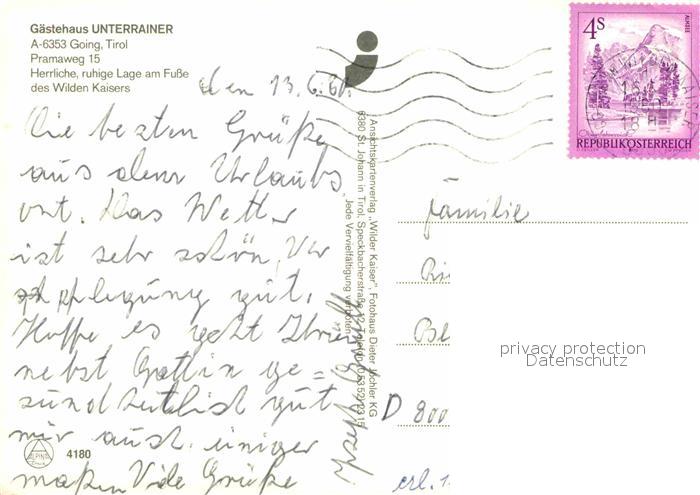 Gästehaus UNTERRAINER
A-6353 Going, Tirol
Pramaweg 15
Herrliche, ruhige Lage am Fuße
des Wilden Kaisers
den 13.6.80.
Die besten Grüße
aus dem Urlaubs
ort. Das Wetter
ist sehr schön, Ver
pflegung gut.
Hoffe es geht Ihnen
nebst Gattin ge=
sundheitlich gut
mir auch einiger
maßen Viele Grüße
ALPINA
4180
Ansichtskartenverlag „Wilder Kaiser", Fotohaus Dieter Jöchler KG
6380 St. Johann in Tirol, Speckbacherstraße 12, Telefon 05352/2315
Jede Vervielfältigung verboten.
4S
ALMSEE
REPUBLIK ÖSTERREICH
Familie
privacy protection
Datenschutz
D 800
erl. 1.